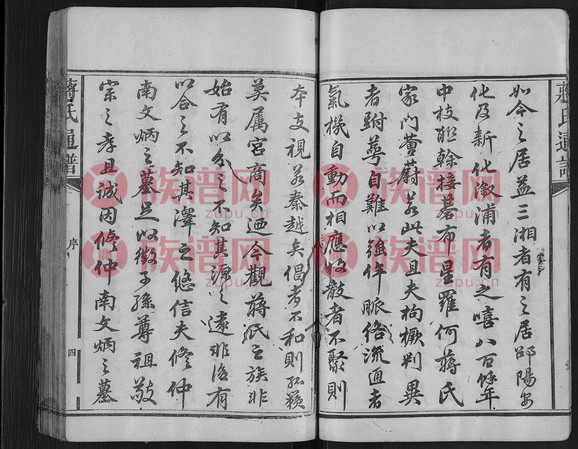 蔣氏通譜
如今之居益三湘者有之居邵陽安
化及新化溆浦者有之嘻八百餘年
中枝聯幹接碁布星羅何蔣氏
家門薈蔚若此夫且夫枸橛判異
者駙萼自難以雖伴脈絡流通者
氣機自動而相應收散者不聚則
本支視若秦越矣倡者不和則孤賴
莫屬宮商矣迺今觀蔣氏之族非
始有以矣之不知其源之遠非後有
以合之不知其澤之悠信夫修仲
南文炳之墓足以徵子孫尊祖敬
宗之孝且誠因修仲南文炳之墓
蔣氏通譜
序
四
族譜网
zupu.cn
族譜网
zupu.cn
族譜网
zupu.cn
族譜网
zupu.cn